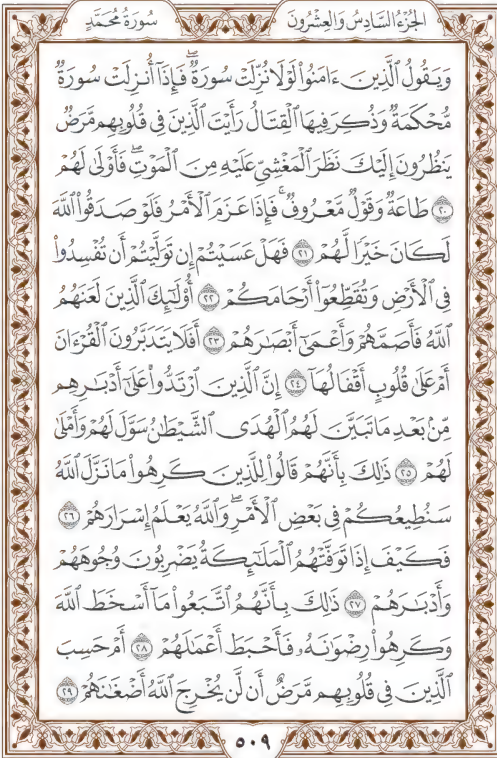 الجُزْءُ السَّادِسُ وَالعِشْرُونَ سُورَةُ مُحَمَّدٍ
وَيَقُولُ ٱلَّذِينَ ءَامَنُوا۟ لَوْلَا نُزِّلَتْ سُورَةٌۖ فَإِذَآ أُنزِلَتْ سُورَةٌ
مُّحْكَمَةٌ وَذُكِرَ فِيهَا ٱلْقِتَالُ رَأَيْتَ ٱلَّذِينَ فِى قُلُوبِهِم مَّرَضٌ
يَنظُرُونَ إِلَيْكَ نَظَرَ ٱلْمَغْشِىِّ عَلَيْهِ مِنَ ٱلْمَوْتِۖ فَأَوْلَىٰ لَهُمْ
٢٠ طَاعَةٌ وَقَوْلٌ مَّعْرُوفٌۚ فَإِذَا عَزَمَ ٱلْأَمْرُ فَلَوْ صَدَقُوا۟ ٱللَّهَ
لَكَانَ خَيْرًا لَّهُمْ ٢١ فَهَلْ عَسَيْتُمْ إِن تَوَلَّيْتُمْ أَن تُفْسِدُوا۟
فِى ٱلْأَرْضِ وَتُقَطِّعُوٓا۟ أَرْحَامَكُمْ ٢٢ أُو۟لَٰٓئِكَ ٱلَّذِينَ لَعَنَهُمُ
ٱللَّهُ فَأَصَمَّهُمْ وَأَعْمَىٰٓ أَبْصَٰرَهُمْ ٢٣ أَفَلَا يَتَدَبَّرُونَ ٱلْقُرْءَانَ
أَمْ عَلَىٰ قُلُوبٍ أَقْفَالُهَآ ٢٤ إِنَّ ٱلَّذِينَ ٱرْتَدُّوا۟ عَلَىٰٓ أَدْبَٰرِهِم
مِّنۢ بَعْدِ مَا تَبَيَّنَ لَهُمُ ٱلْهُدَىۙ ٱلشَّيْطَٰنُ سَوَّلَ لَهُمْ وَأَمْلَىٰ
لَهُمْ ٢٥ ذَٰلِكَ بِأَنَّهُمْ قَالُوا۟ لِلَّذِينَ كَرِهُوا۟ مَا نَزَّلَ ٱللَّهُ
سَنُطِيعُكُمْ فِى بَعْضِ ٱلْأَمْرِۖ وَٱللَّهُ يَعْلَمُ إِسْرَارَهُمْ ٢٦
فَكَيْفَ إِذَا تَوَفَّتْهُمُ ٱلْمَلَٰٓئِكَةُ يَضْرِبُونَ وُجُوهَهُمْ
وَأَدْبَٰرَهُمْ ٢٧ ذَٰلِكَ بِأَنَّهُمُ ٱتَّبَعُوا۟ مَآ أَسْخَطَ ٱللَّهَ
وَكَرِهُوا۟ رِضْوَٰنَهُۥ فَأَحْبَطَ أَعْمَٰلَهُمْ ٢٨ أَمْ حَسِبَ
ٱلَّذِينَ فِى قُلُوبِهِم مَّرَضٌ أَن لَّن يُخْرِجَ ٱللَّهُ أَضْغَٰنَهُمْ ٢٩
٥٠٩